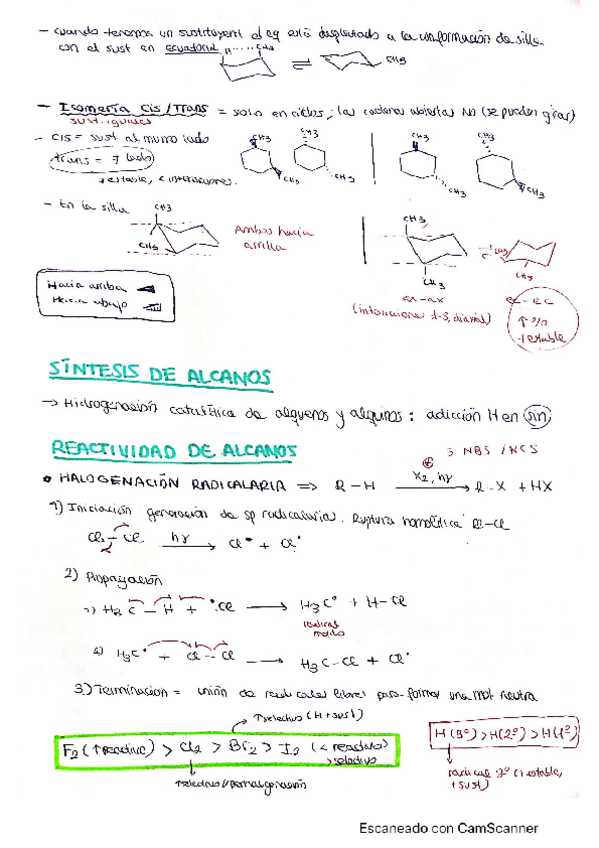 - Cuando tenemos un sustituyente el eq está desplazado a la conformación de silla
con el sust en ecuatorial
CH3
CH3
- Isomería Cis/Trans = solo en ciclos; las cadenas abiertas NO (se pueden girar)
sust. iguales
- CIS = sust al mismo lado
trans = ≠ lado
+ estable, < interacciones.
CH3 CH3 CH3 CH3
CH3 CH3 CH3 CH3
- En la silla
CH3
CH3
Ambos hacia
arriba
CH3
CH3
CH3
CH3
ax-ax
(interacciones 1-3, diaxial)
ec-ec
↑ %
+ estable
Hacia arriba
Hacia abajo
SÍNTESIS DE ALCANOS
→ Hidrogenación catalítica de alquenos y alquinos: adicción H en sin
REACTIVIDAD DE ALCANOS
NBS / NCS
• HALOGENACIÓN RADICALARIA => R-H X2, hν → R-X + HX
1) Iniciación generación de sp radicalaria. Ruptura homolítica Cl-Cl
Cl - Cl hν → Cl• + Cl•
2) Propagación
1) H3C - H + •Cl → H3C• + H-Cl
radical
metilo
2) H3C• + Cl-Cl → H3C-Cl + Cl•
3) Terminacion = unión de radicales libres para formar una mol neutra
↑ selectivo (H + sust)
F2 (↑ reactivo) > Cl2 > Br2 > I2 (< reactivo)
> selectivo
H(3º) > H(2º) > H(1º)
radical 3º (+ estable,
+ sust)
Escaneado con CamScanner